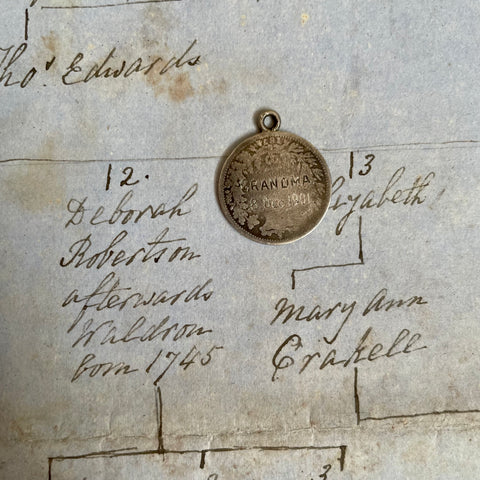 Thos. Edwards
12.
Deborah
Robertson
afterwards
Waldron
born 1745
GRANDMA
DEC. 1901
13
Elizabeth
Mary Ann
Crakell
3